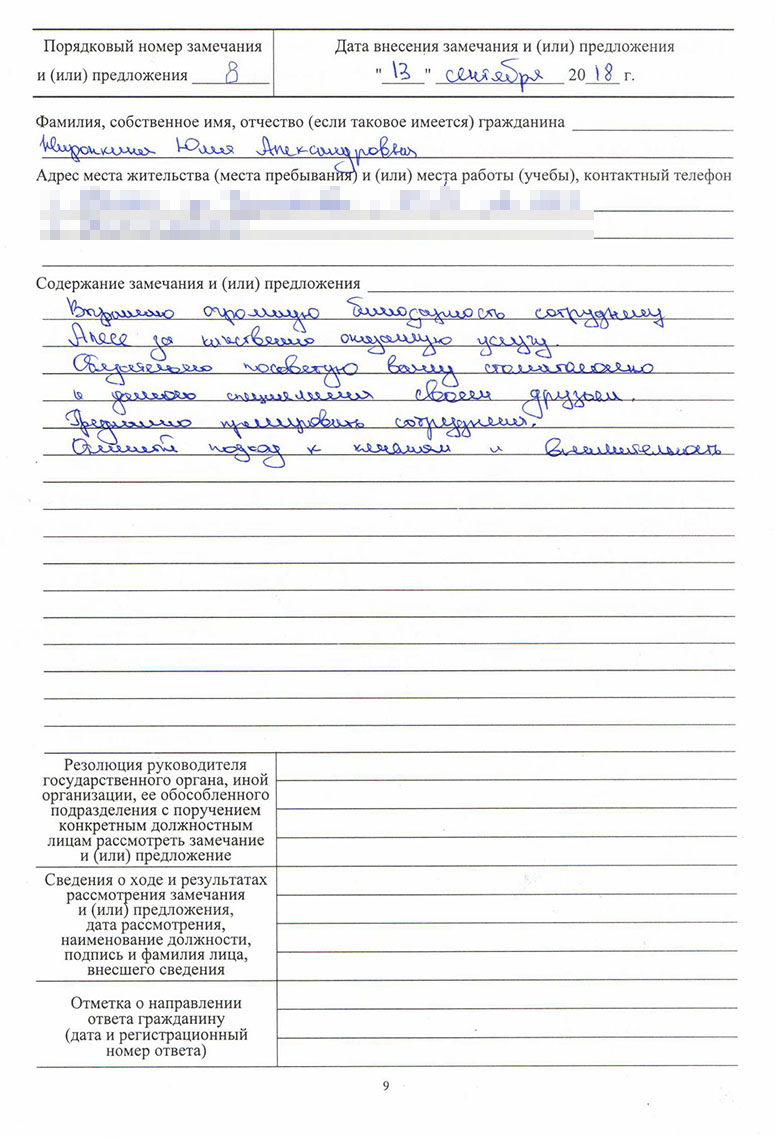 Порядковый номер замечания
и (или) предложения 8
Дата внесения замечания и (или) предложения
"13" сентября 2018 г.
Фамилия, собственное имя, отчество (если таковое имеется) гражданина
Юлия Александровна
Адрес места жительства (места пребывания) и (или) места работы (учебы), контактный телефон
Содержание замечания и (или) предложения
Выражаю огромную благодарность сотруднику
Алесе за качественно оказанную услугу.
Обязательно посоветую вашу стоматологию
и данного специалиста своим друзьям.
Предлагаю премировать сотрудника.
подход к клиентам и внимательность
Резолюция руководителя
государственного органа, иной
организации, ее обособленного
подразделения с поручением
конкретным должностным
лицам рассмотреть замечание
и (или) предложение
Сведения о ходе и результатах
рассмотрения замечания
и (или) предложения,
дата рассмотрения,
наименование должности,
подпись и фамилия лица,
внесшего сведения
Отметка о направлении
ответа гражданину
(дата и регистрационный
номер ответа)
9